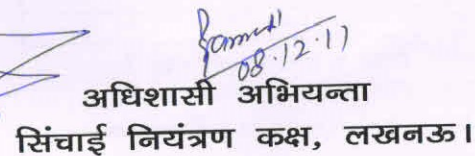 08.12.17
अधिशासी अभियन्ता
सिंचाई नियंत्रण कक्ष, लखनऊ।